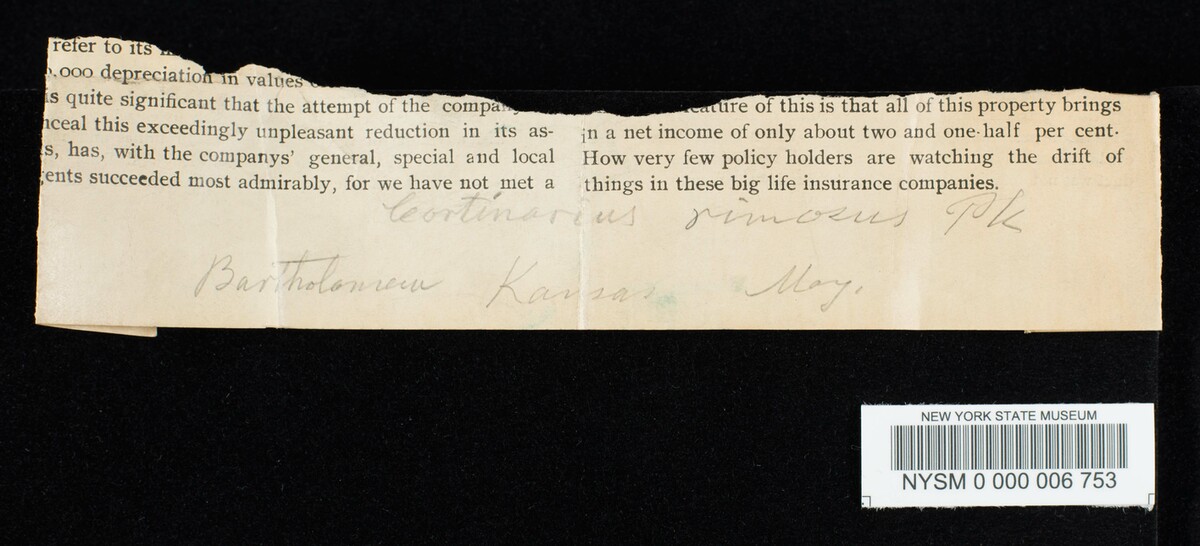 refer to its
,000 depreciation in values
is quite significant that the attempt of the compan
nceal this exceedingly unpleasant reduction in its as-
s, has, with the companys' general, special and local
ents succeeded most admirably, for we have not met a
ature of this is that all of this property brings
in a net income of only about two and one-half per cent.
How very few policy holders are watching the drift of
things in these big life insurance companies.
Cortinarius rimosus Pk
Bartholomew Kansas May.
NEW YORK STATE MUSEUM
NYSM 0 000 006 753